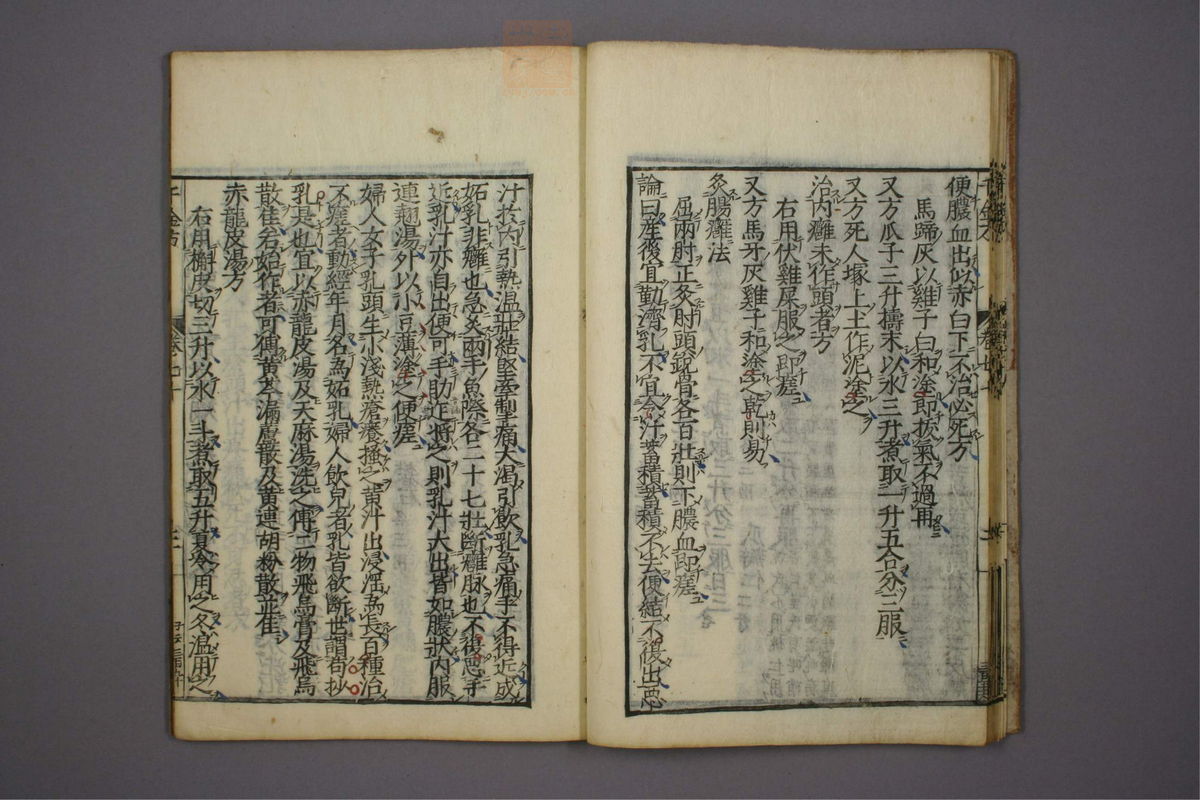 便膿血出似赤白下不治必死方
馬蹄灰以雞子白和塗即拔氣不過再
又方瓜子三升擣末以水三升煮取一升五合分三服
又方死人塚上土作泥塗之
治內癰未作頭者方
右用伏雞屎服之即瘥
又方馬牙灰雞子和塗之乾則易
灸腸癰法
屈兩肘正灸肘頭銳骨各百壯則下膿血即瘥
論曰產後宜勤濟乳不宜令汁蓄積蓄積不去便結不復出惡
汁於內引熱溫壯結堅牽掣痛大渴引飲乳急痛手不得近成
妬乳非癰也急灸兩手魚際各二十七壯斷癰脉也不復惡手
近乳汁亦自出便可手助迮將之則乳汁大出皆如膿狀內服
連翹湯外以小豆薄塗之便瘥
婦人女子乳頭生小淺熱瘡癢搔之黃汁出浸淫為長百種治
不瘥者動經年月名為妬乳婦人飲兒者乳皆欲斷世謂苟抄
乳是也宜以赤龍皮湯及天麻湯洗之傅二物飛烏膏及飛烏
散佳若始作者可傅黃芩漏蘆散及黃連胡粉散並佳
赤龍皮湯方
右用槲皮切三升以水一斗煮取五升夏冷用之冬溫用之
千金方